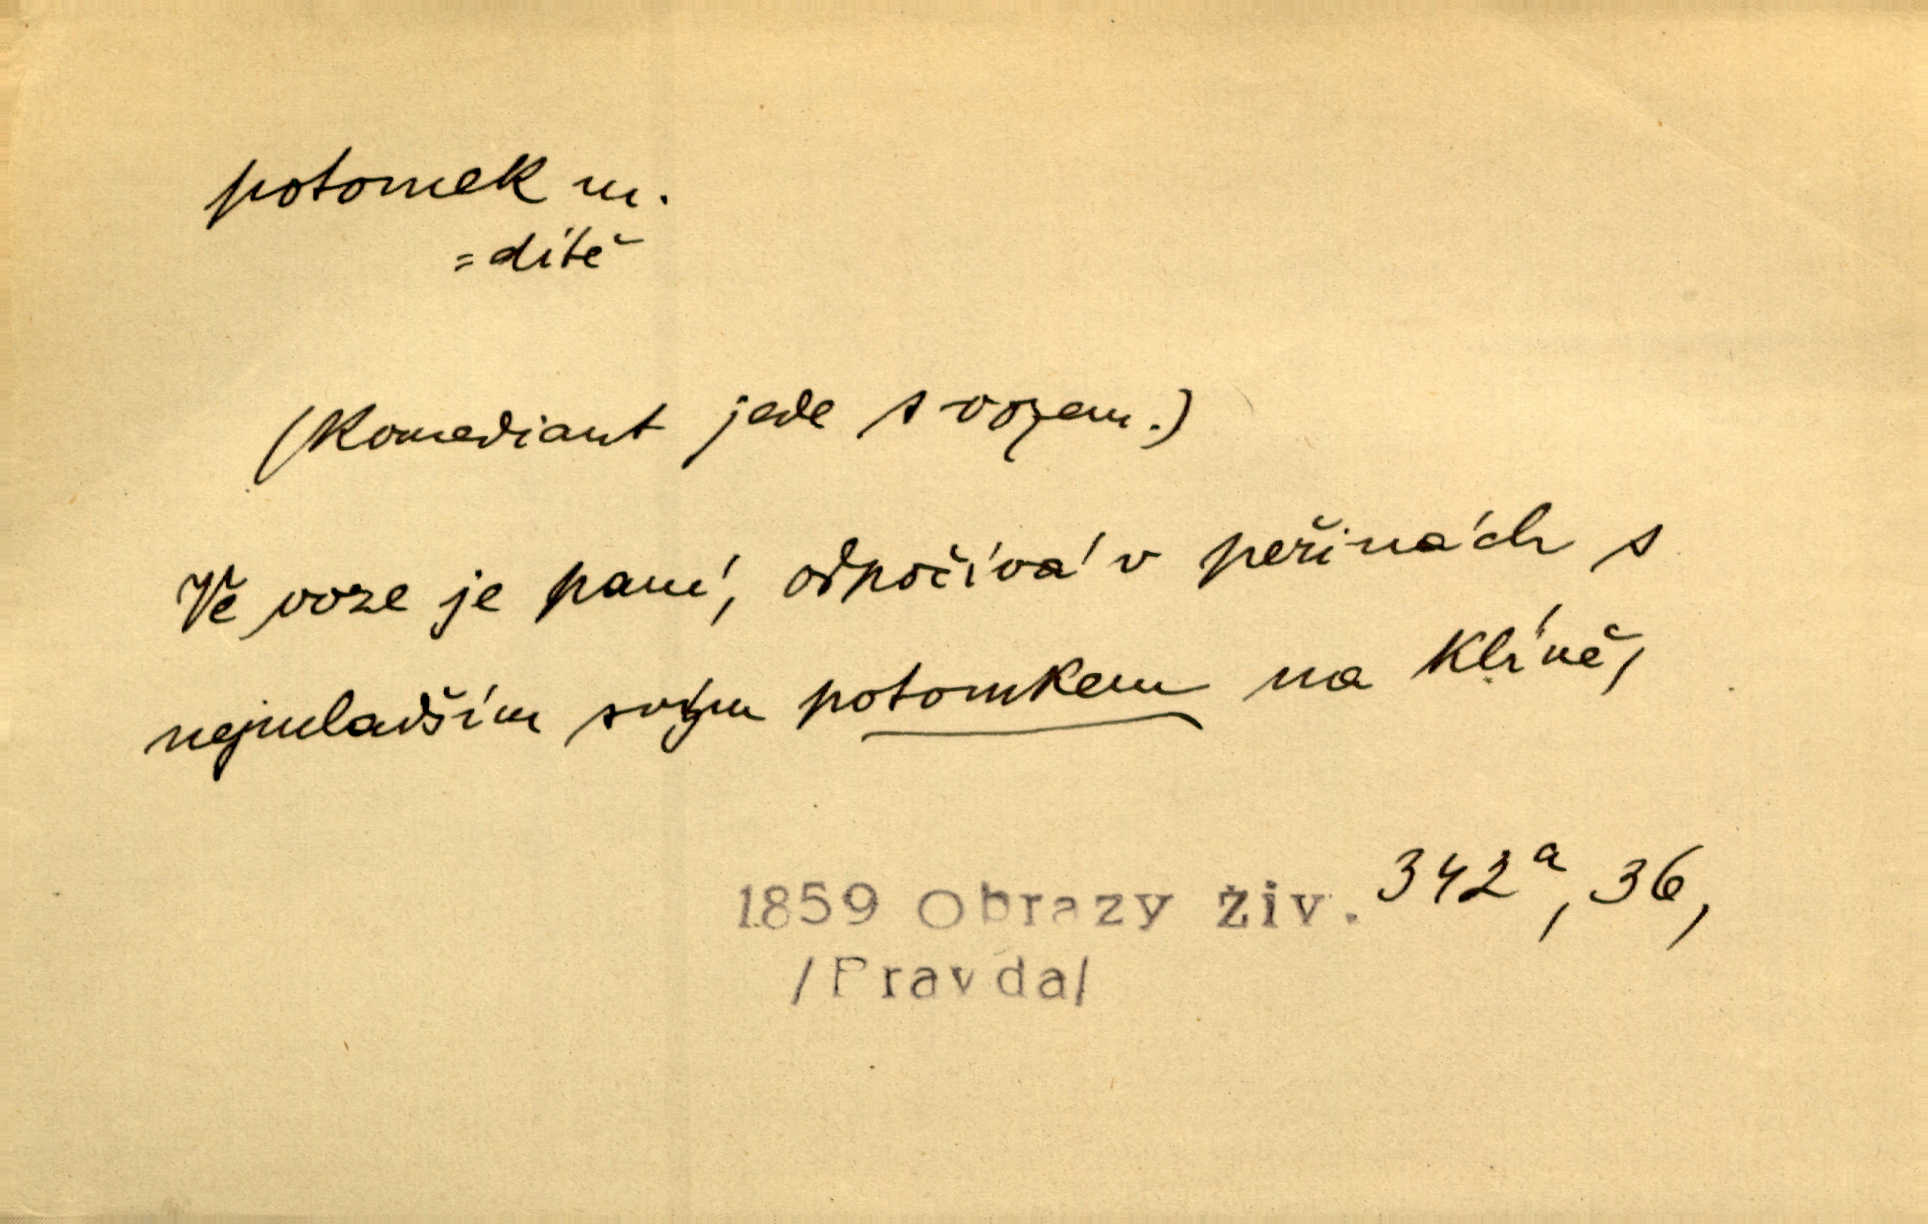 potomek m.
= dítě
(Komediant jede s vozem.)
Ve voze je paní, odpočívá v peřinách s
nejmladším svým potomkem na klíně,
1859 Obrazy živ. 342a, 36,
/Pravda/